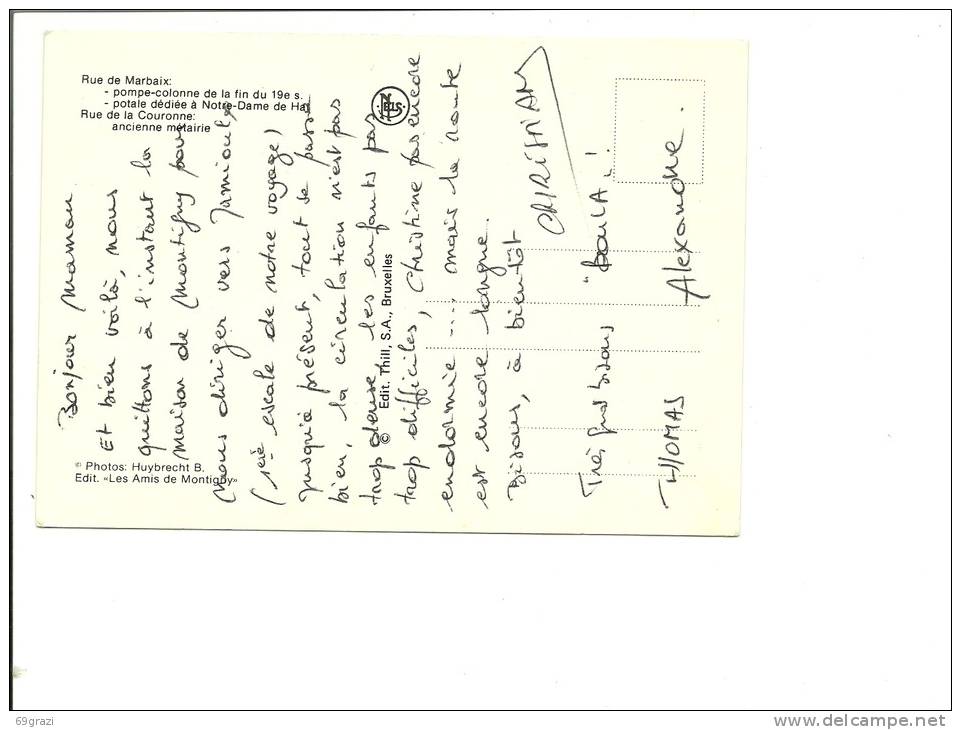 Rue de Marbaix:
- pompe-colonne de la fin du 19e s.
- potale dédiée à Notre-Dame de Hal
Rue de la Couronne:
ancienne métairie
Bonjour Maman
Et bien voilà, nous
quittons à l'instant la
maison de Montigny pour
nous diriger vers Jamioulx
(1ère escale de notre voyage)
jusqu'à présent, tout se passe
bien, la circulation n'est pas
trop dense, les enfants pas
trop difficiles, Christine pas encore
endormie .... mais la route
est encore longue.
Bisous, à bientôt
CHRISTIAN
Très gros bisous
THOMAS
Alexandre.
© Photos: Huybrecht B.
Edit. «Les Amis de Montigny»
© Edit. Thill, S.A., Bruxelles
69grazi
www.delcampe.net